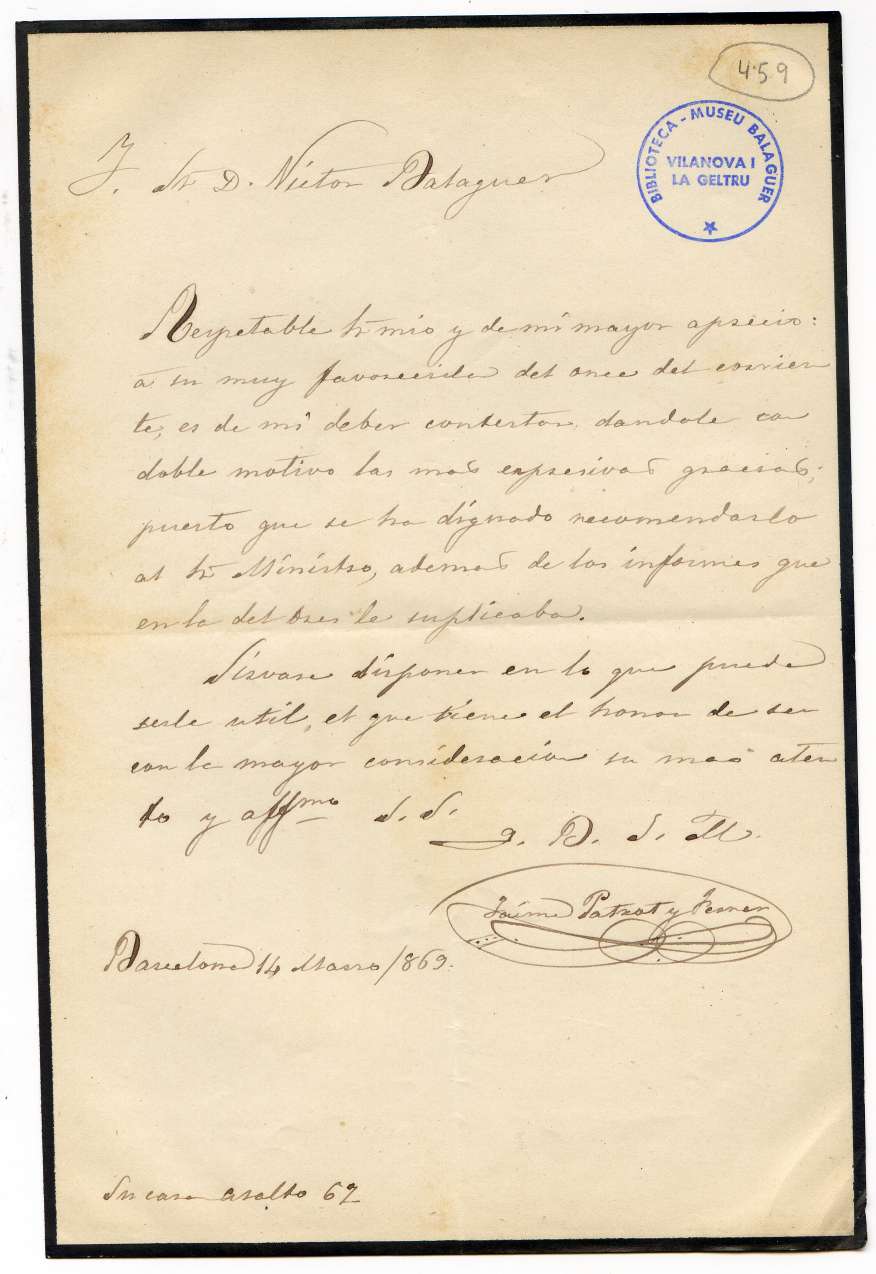 459
BIBLIOTECA - MUSEU BALAGUER
VILANOVA I
LA GELTRU
Sr D. Victor Balaguer
Respetable Sr mio y de mi mayor aprecio:
á su muy favorecida del once del corrien
te, es de mi deber contestar, dandole con
doble motivo las mas expresivas gracias;
puesto que se ha dignado recomendarlo
al Sr Ministro, ademas de los informes que
en la del tres le suplicaba.
Sírvase disponer en lo que pueda
serle util, el que tiene el honor de ser
con la mayor consideracion su mas aten
to y affmo S. S.
Q. B. S. M.
Jaime Patxot y Ferrer
Barcelona 14 Marzo /869.
Su casa asalto 62